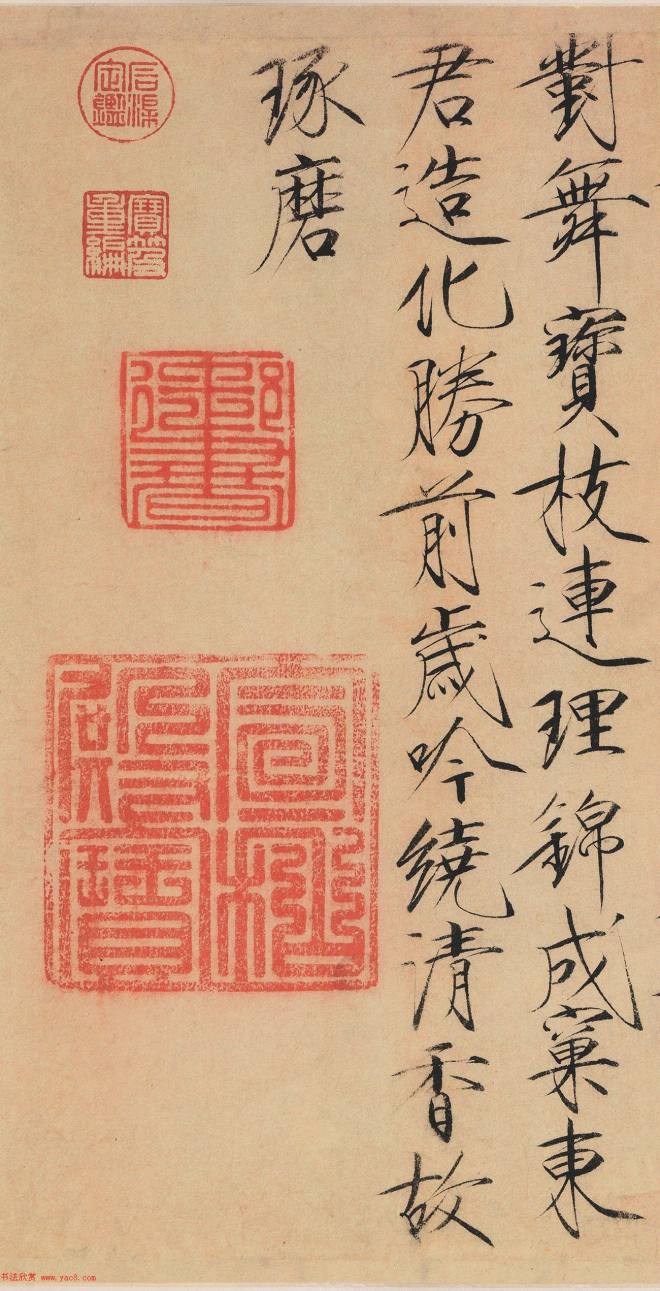 對舞寶枝連理錦成窠東
君造化勝前歲吟繞清香故
琢磨
石渠
定鑑
寶笈
重編
御書
宣統
御覽
之寶
书法欣赏 www.yac8.com